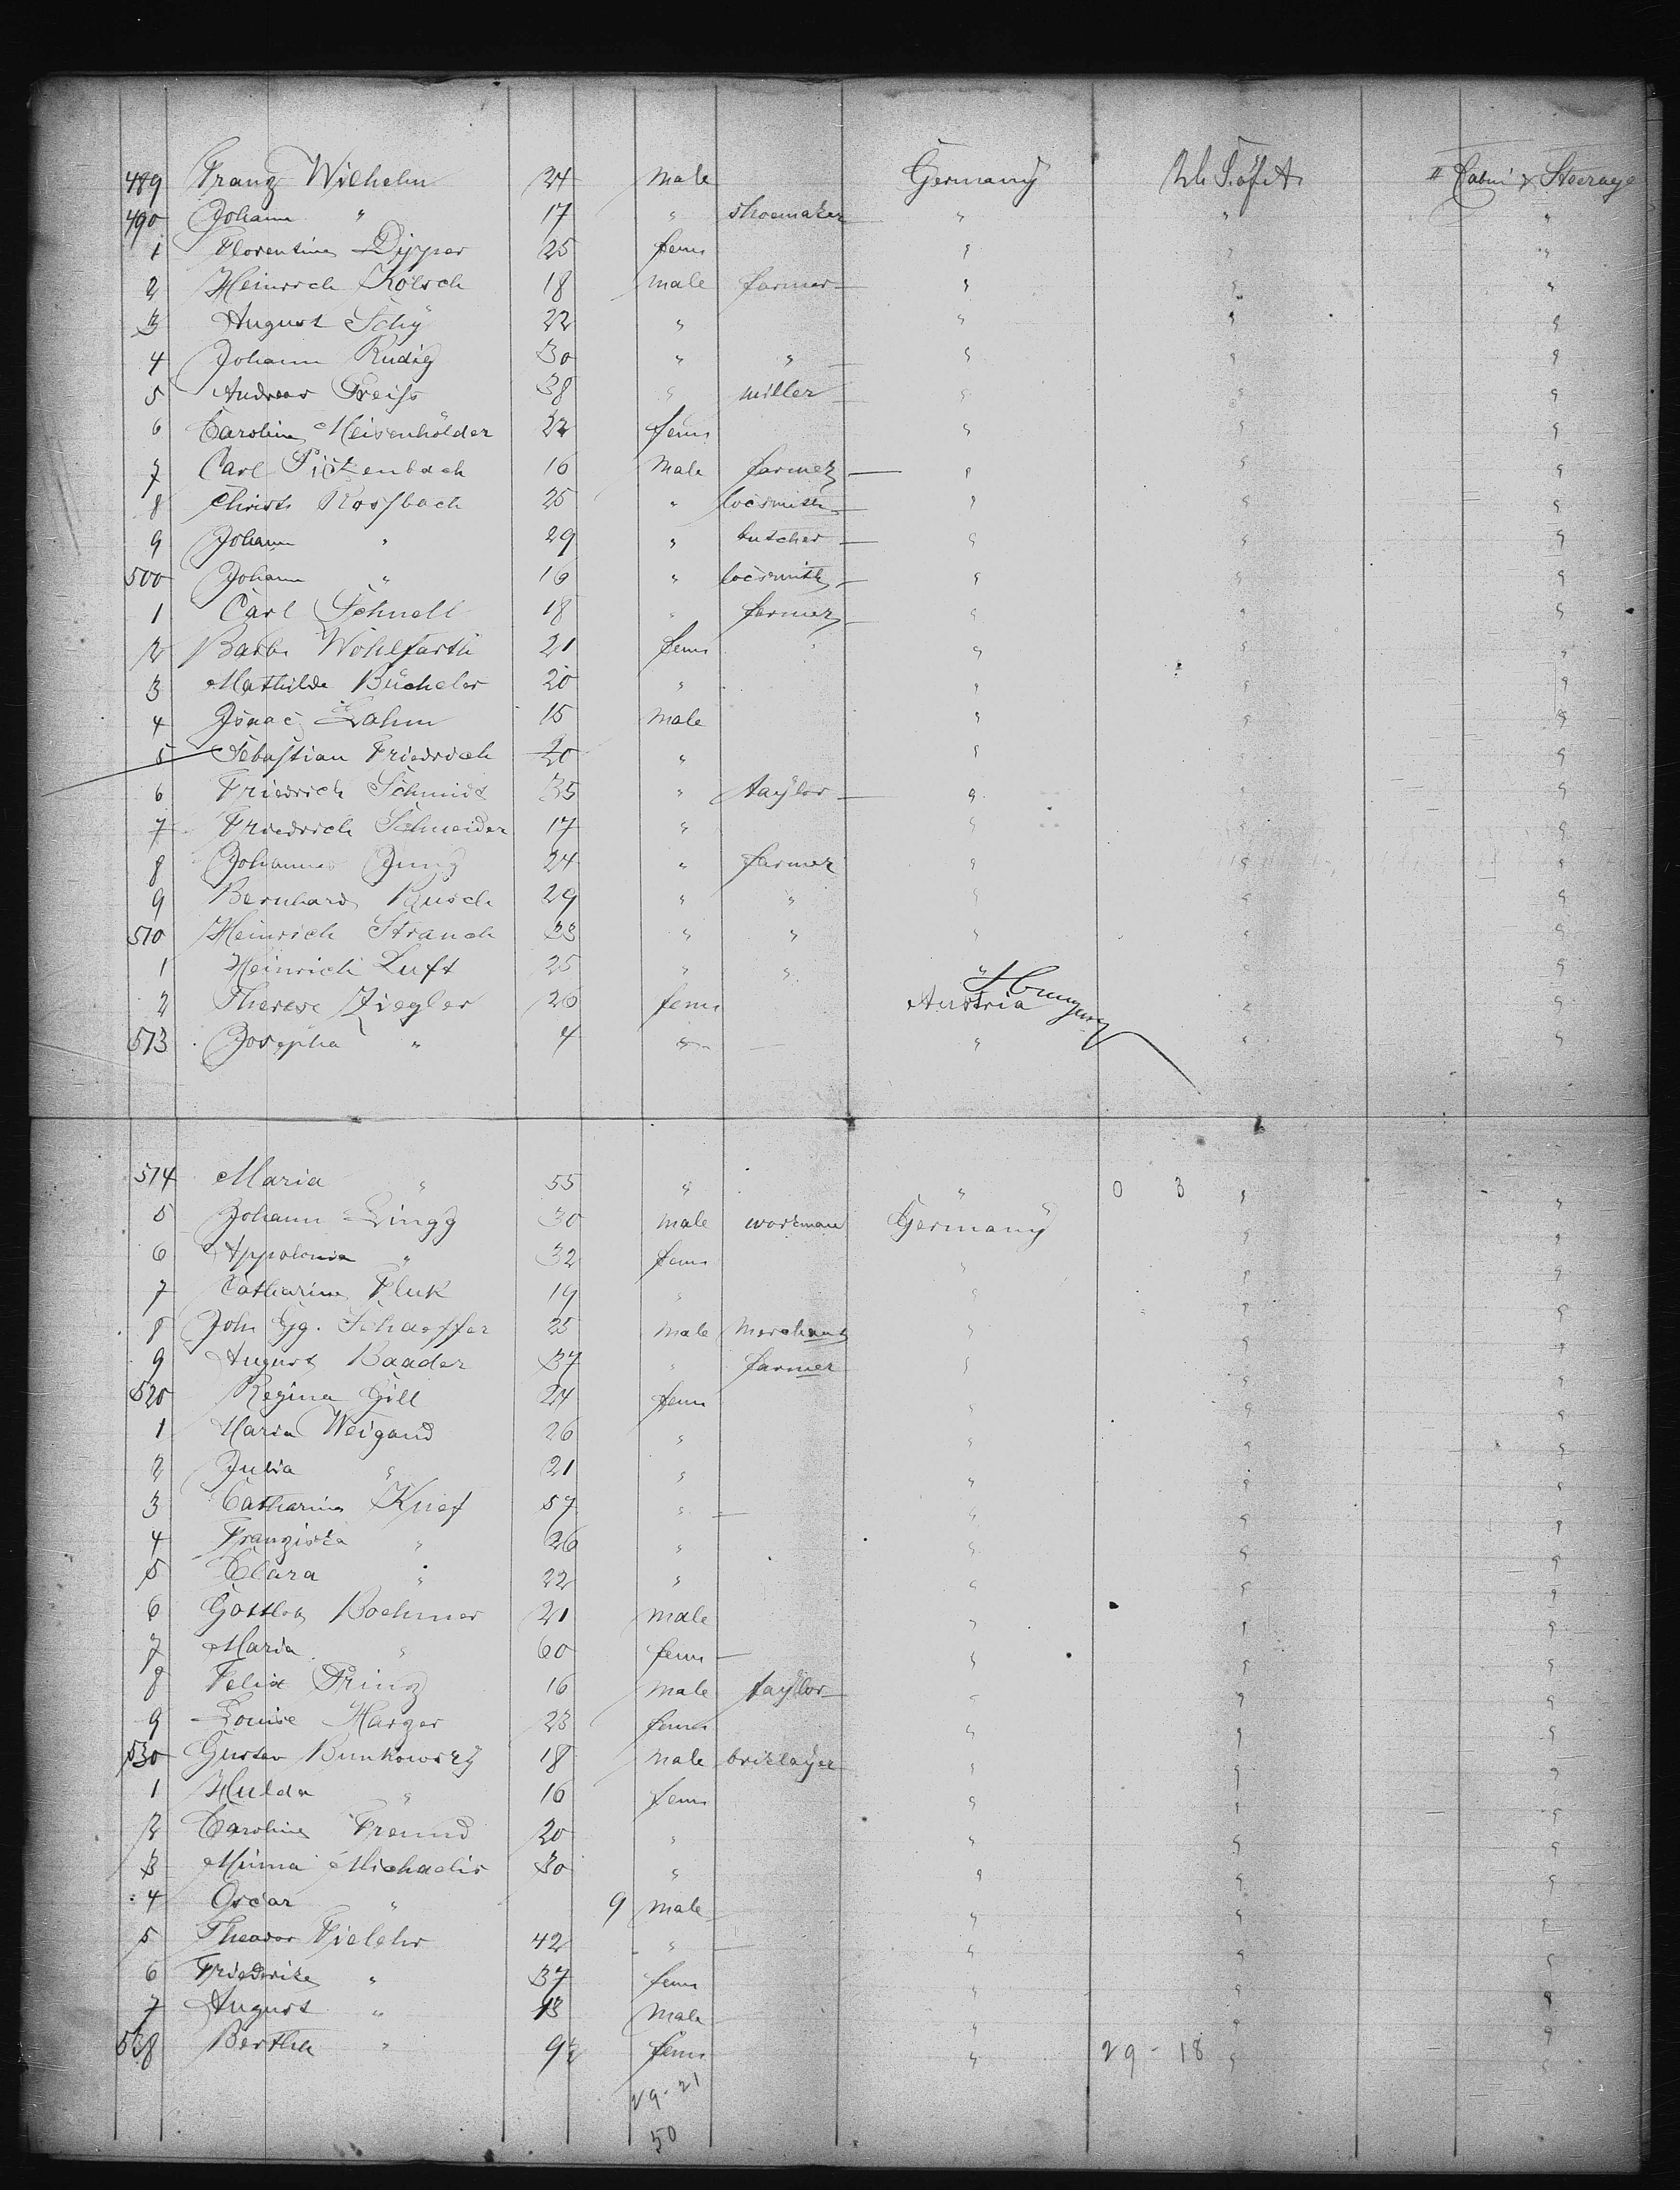 489 Franz Wilhelm 24 Male Germany U. S. of A. II Cabin & Steerage
490 Johann " 17 " shoemaker " " "
1 Florentine Dipper 25 fem " " "
2 Heinrich Kölsch 18 male farmer " " "
3 August Schÿ 22 " " " "
4 Johann Rudig 30 " " " " "
5 Andreas Preiss 38 " miller " " "
6 Caroline Meisenhölder 22 fem " " "
7 Carl Pickenbach 16 Male farmer " " "
8 Christ. Rossbach 25 " locsmith " " "
9 Johann " 29 " butcher " " "
500 Johann " 16 " locsmith " " "
1 Carl Schnell 18 " farmer " " "
2 Barb. Wohlfarth 21 fem " " "
3 Mathilde Bücheler 20 " " " "
4 Isaac Lahm 15 Male " " "
5 Sebastian Friedrich 20 " " " "
6 Friedrich Schmidt 35 " taylor " " "
7 Friedrich Schneider 17 " " " "
8 Johannes Jung 24 " farmer " " "
9 Bernhard Busch 29 " " " " "
510 Heinrich Strauch 33 " " " " "
1 Heinrich Luft 25 " " " " "
2 Therese Ziegler 26 fem Austria Hungary " "
513 Josepha " 4 " " " "
514 Maria " 55 " " 0 3 " "
5 Johann Lingg 30 male workman Germany " "
6 Appolonia " 32 fem " " "
7 Catharina Fluk 19 " " " "
8 Joh. Gg. Schaeffer 25 male Merchant " " "
9 August Baader 37 " farmer " " "
520 Regina Gill 24 fem " " "
1 Maria Weigand 26 " " " "
2 Julia " 21 " " " "
3 Catharina Knief 57 " " " "
4 Franziska " 26 " " " "
5 Clara " 22 " " " "
6 Gottlob Boehmer 21 male " " "
7 Maria " 60 fem " " "
8 Felix Prinz 16 male taylor " " "
9 Louise Harger 23 fem " " "
530 Gustav Bunkowsky 18 male briklayer " " "
1 Hulda " 16 fem " " "
2 Caroline Freund 20 " " " "
3 Minna Michaelis 30 " " " "
4 Oscar " 9 male " " "
5 Theodor 42 " " " "
6 Friederike " 37 fem " " "
7 August " 13 Male " " "
538 Bertha " 9½ fem " 29 - 18 " "
29 - 21
50